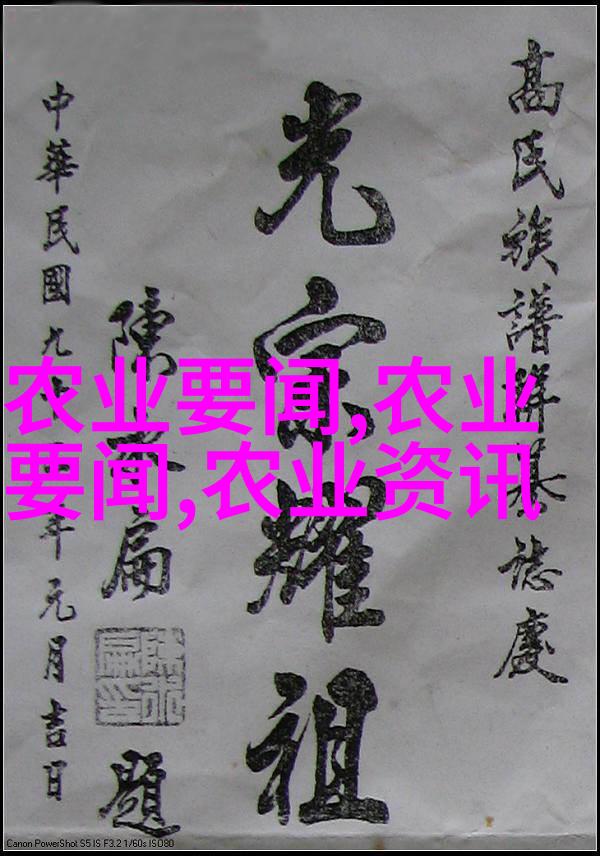 高氏族譜誌慶
光宗耀祖
陳水扁
題
陳水扁印
中華民國九十年元月吉日
农业要闻,农业
要闻,农业资讯
Canon PowerShot S5 IS F3.2 1/60s ISO80